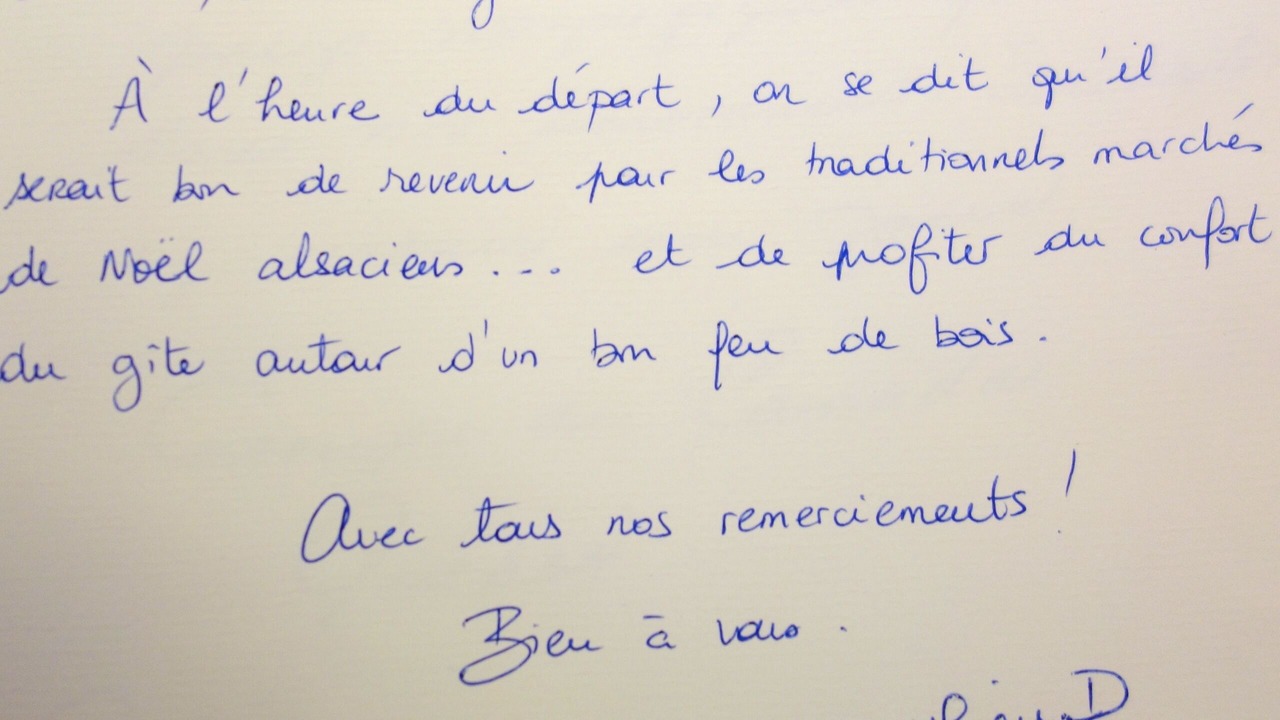 À l'heure du départ, on se dit qu'il
serait bon de revenir pour les traditionnels marchés
de Noël alsaciens... et de profiter du confort
du gîte autour d'un bon feu de bois.
Avec tous nos remerciements !
Bien à vous.